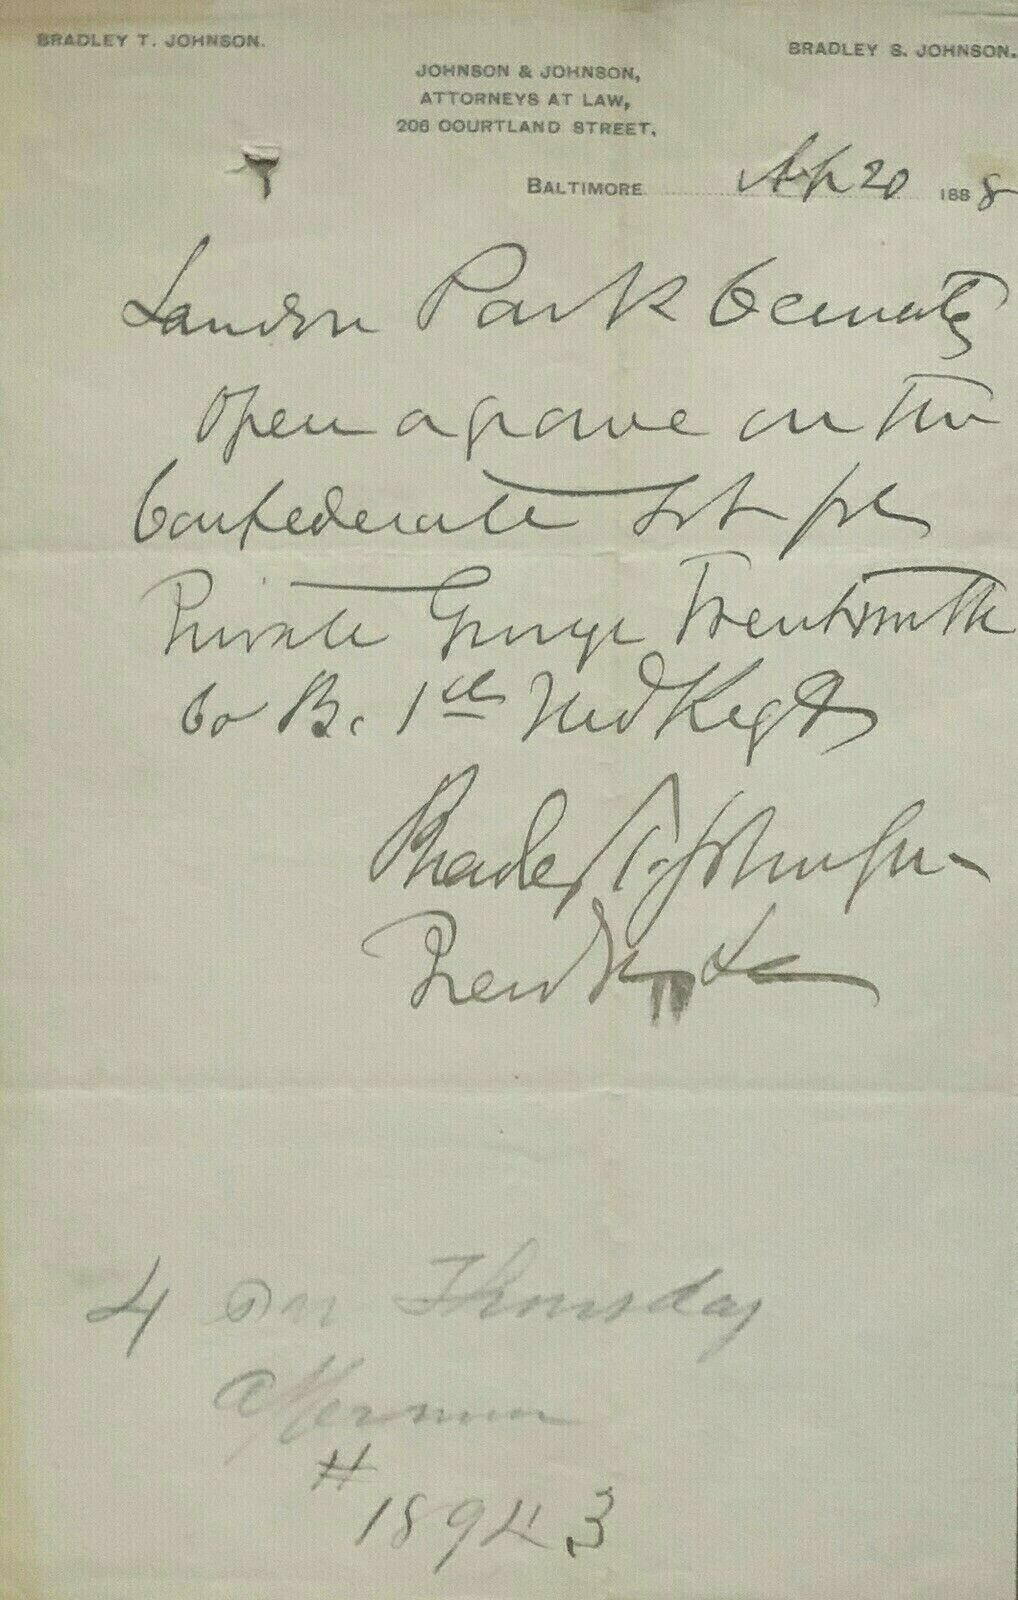 BRADLEY T. JOHNSON.
BRADLEY S. JOHNSON.
JOHNSON & JOHNSON,
ATTORNEYS AT LAW,
206 COURTLAND STREET,
BALTIMORE Ap 20 1888
Loudon Park Cemety
Open a grave on the
Confederate lot for
Private George
Co B. 1st Md Regt
Bradley T. Johnson
Prest
4 on Thursday
#
18943